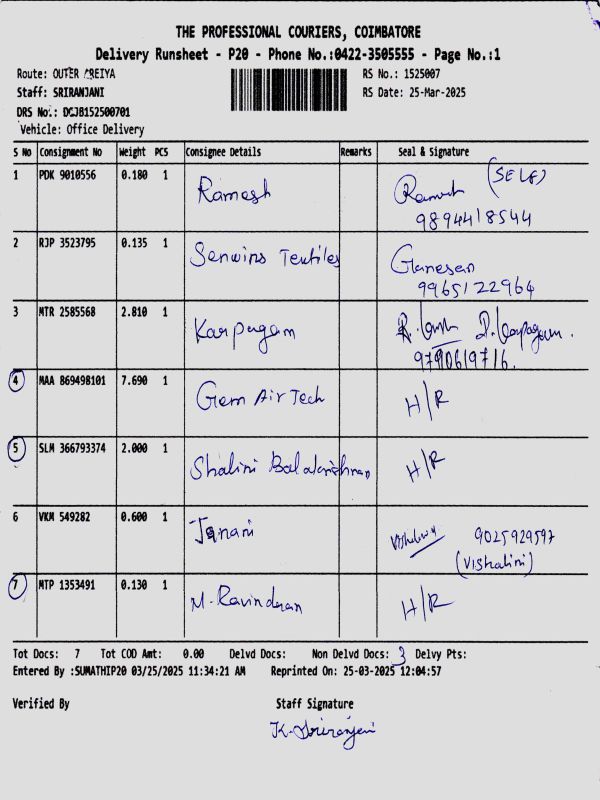 THE PROFESSIONAL COURIERS, COIMBATORE
Delivery Runsheet - P20 - Phone No.:0422-3505555 - Page No.:1
Route: OUTER AREIYA
RS No.: 1525007
Staff: SRIRANJANI
RS Date: 25-Mar-2025
DRS No.: DCJB152500701
Vehicle: Office Delivery
S No Consignment No Weight PCS Consignee Details Remarks Seal & Signature
1 PDK 9010556 0.180 1 Ramesh Ramesh (SELF)
9894418544
2 RJP 3523795 0.135 1 Senwins Textiles Ganesan
9965122964
3 MTR 2585568 2.810 1 Karpagam
9790619716.
4 MAA 869498101 7.690 1 Gem Air Tech H/R
5 SLM 366793374 2.000 1 Shalini Balakrishnan H/R
6 VKM 549282 0.600 1 Janani 9025929597
(Vishalini)
7 MTP 1353491 0.130 1 M. Ravindaran H/R
Tot Docs: 7 Tot COD Amt: 0.00 Delvd Docs: Non Delvd Docs: 3 Delvy Pts:
Entered By :SUMATHIP20 03/25/2025 11:34:21 AM Reprinted On: 25-03-2025 12:04:57
Verified By Staff Signature
K. Sriranjani